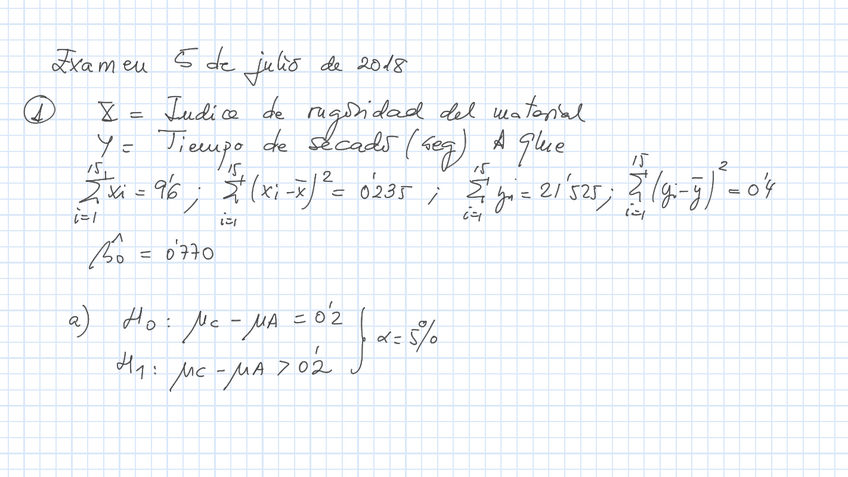 Examen 5 de julio de 2018
① X = Indice de rugosidad del material
Y = Tiempo de secado (seg) A glue
∑_{i=1}^{15} xi = 9'6 ; ∑_{i=1}^{15} (xi - x̄)² = 0'235 ; ∑_{i=1}^{15} yi = 21'525 ; ∑_{i=1}^{15} (yi - ȳ)² = 0'4
β̂0 = 0'770
a) H0 : μC - μA = 0'2
α = 5%
H1 : μC - μA > 0'2